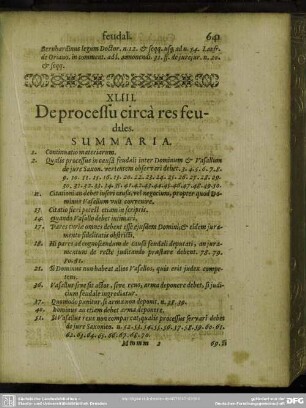 feudal. 641
Bernhardinus legum Doctor. n. 12. & seqq. usq; ad n. 34. Lanfr.
de Oriano. in comment. ad l. admonendi. 31. ff. de jurejur. n. 20.
& seqq.
XLIII.
De processu circà res feu-
dales.
SUMMARIA.
1. Continuatio materiarum.
2. Qualis processus in causâ feudali inter Dominum & Vasallum
de jure Saxon. vertentem observari debet. 3. 4. 5. 6. 7. 8.
9. 10. 11. 15. 16. 19. 20. 22. 23. 24. 25. 26. 27. 28. 29.
30. 31. 32. 33. 34. 35. 41. 42. 43. 44. 45. 46. 47. 48. 49. 50.
12. Citationi an debet inseri causa, vel negocium, propter quod Do-
minus Vasallum vult convenire.
13. Citatio fieri potest etiam in scriptis.
14. quando Vasallo debet intimari.
17. Pares curiæ omnes debent esse ejusdem Domini, & eidem jura-
mento fidelitatis obstricti.
18. Hi pares ad cognoscendum de causâ feudali deputati, an jura-
mentum de recte judicando præstare debent. 78. 79.
80. 81.
21. Si Dominus non habeat alios Vasallos, quis erit judex compe-
tens.
36. Vasallus sive sit actor, sive reus, arma deponere debet, si judi-
cium feudale ingrediatur.
37. Quomodo punitur, si arma non deponit. n. 38. 39.
40. Dominus an etiam debet arma deponere.
51. Si Vasallus reus non compareat, qualis processus servari debet
de jure Saxonico. n. 52. 53. 54. 55. 56. 57. 58. 59. 60. 61.
62. 63. 64. 65. 66. 67. 68.
Mmmm 2 69. Si